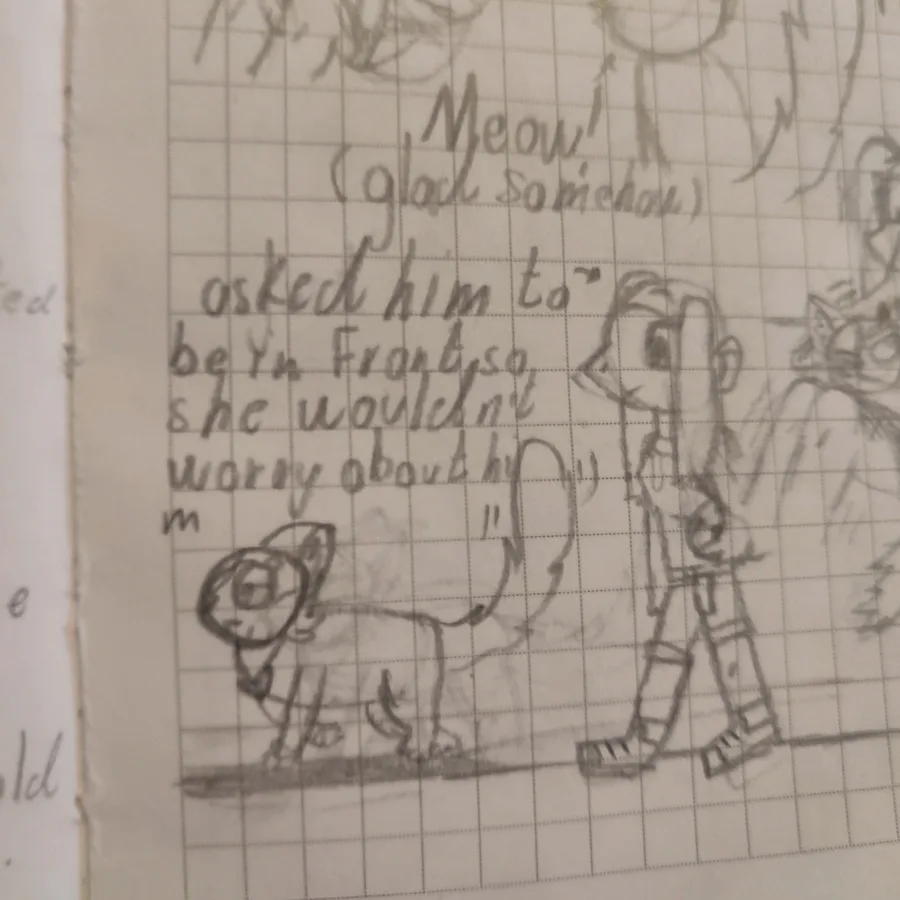 Meow!
(glad somehow)
asked him to
be in Front, so
she wouldn't
worry about hi
m
e
old